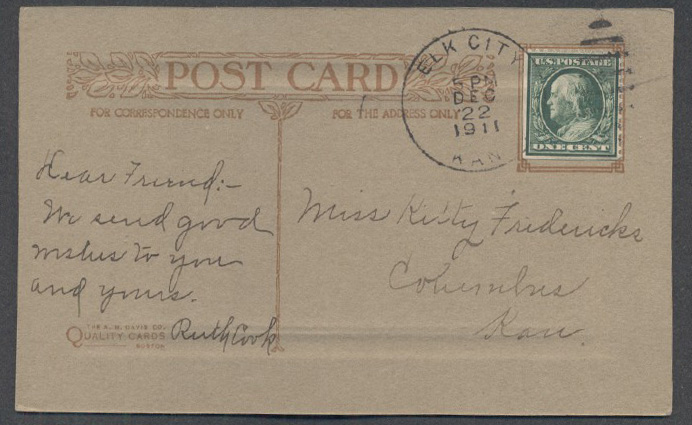 POST CARD
FOR CORRESPONDENCE ONLY
FOR THE ADDRESS ONLY
ELK CITY
DEC
22
1911
KAN
U.S. POSTAGE
ONE CENT
Dear Friend:-
We send good
wishes to you
and yours.
Ruth Cook
Miss Kitty Fredericks
Columbus
Kan.
THE A. M. DAVIS CO.
QUALITY CARDS
BOSTON